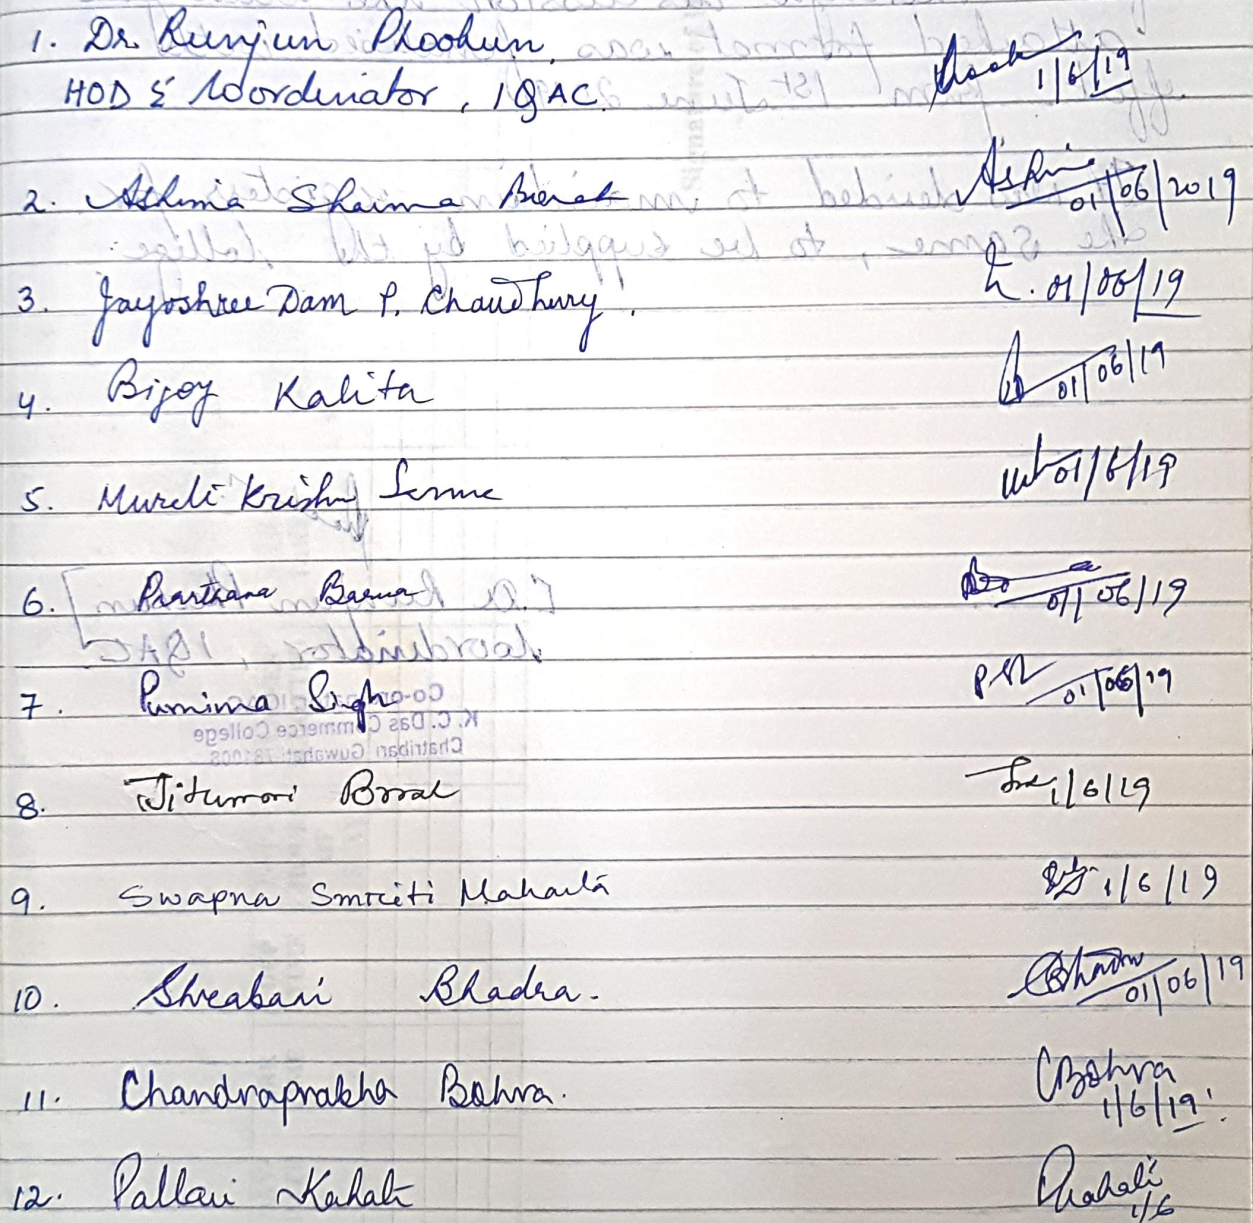 1. Dr Runjun Phookun 1/6/19
HOD & Coordinator, IQAC.
2. Ashima Sharma Borah 01/06/2019
3. Jayoshree Dam P. Chaudhury. 01/06/19
4. Bijoy Kalita 01/06/19
5. Murali Krishna Sarma 01/6/19
6. Prarthana Barua 01/06/19
7. Purnima Singh 01/06/19
8. Jitumoni Borah 1/6/19
9. Swapna Smriti Mahanta 1/6/19
10. Shreabani Bhadra. 01/06/19
11. Chandraprabha Bohra. CBohra
1/6/19
12. Pallavi Kakati 1/6